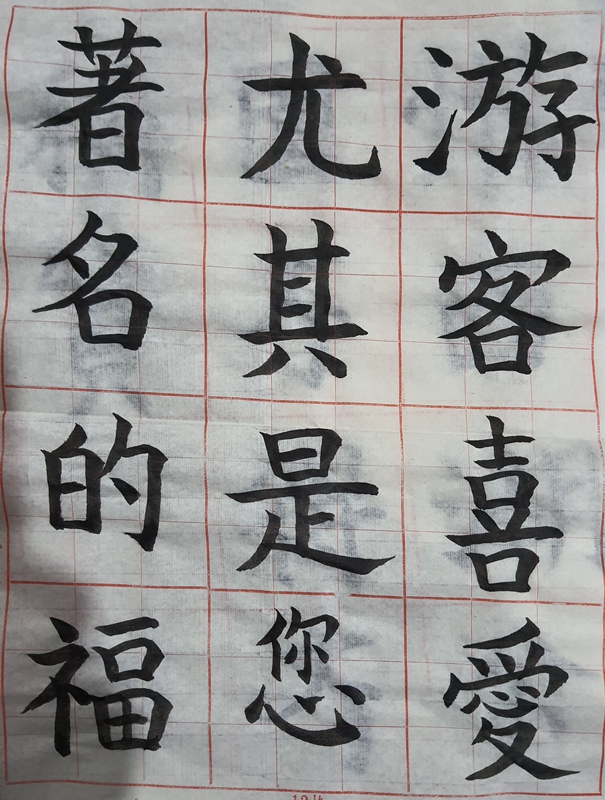 游客喜愛
尤其是您
著名的福